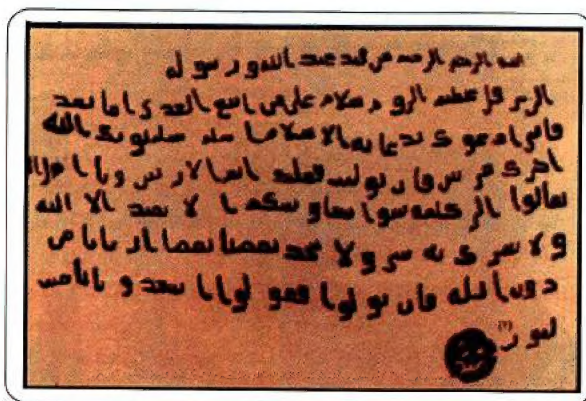 بسم الله الرحمن الرحيم من محمد عبد الله ورسول
الى هرقل عظيم الروم سلام على من اتبع الهدى اما بعد
فانى ادعوك بدعاية الاسلام اسلم تسلم يوتك الله
اجرك مرتين فان توليت فعليك اثم الاريسين ويا اهل
تعالوا الى كلمة سوا بيننا وبينكم ا لا نعبد الا الله
ولا نشرك به شيا ولا يتخذ بعضنا بعضا اربابا من
دون الله فان تولوا فقولوا اشهدوا بانا مس
لمون (٢)